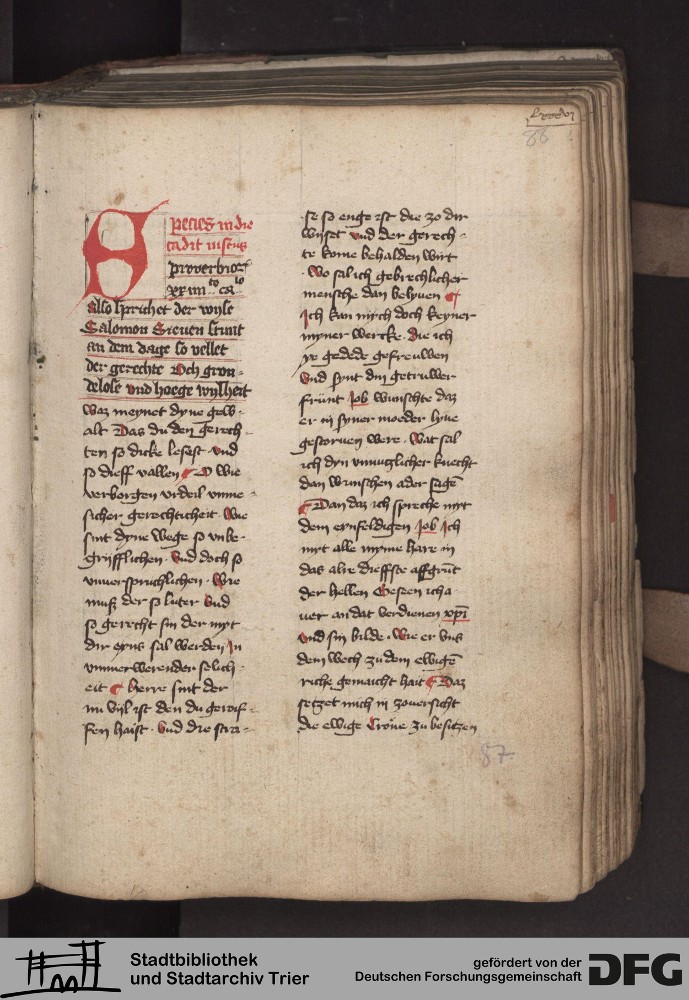 88
Species in die
cadit iustus
proverbior
xxiiii to ca o
also sprichet der wyse
Salomon Sieuen stunt
an dem dage so vellet
der gerechte Och gron-
delose vnd hoege wyßheit
waz meynet dyne gew-
alt Das du den gerech-
ten so dicke lesest vnd
so dieff vallen O wie
verborgen vrdeil vnme-
sicher gerechticheit Wie
sint dyne wege so vnbe-
gryfflichen Vnd doch so
vnuerspruchlichen Wie
muß der so luter vnd
so gerecht sin der myt
dir eyns sal werden In
vmmerwerender selich-
eit Herre sint der
nu vyl ist den du geroif-
fen haist Vnd die stra-
se so enge ist die zo dir
wyset vnd der gerech-
te kome behalden wirt
Wo sal ich gebrechlicher
mensche dan belyuen
Ich kan mych doch keyner
myner wercke Die ich
ye gedede gefreuwen
Vnd synt din getruwer
frünt Job wunschte daz
er in syner moeder lyue
gestoruen were Wat sal
ich dyn vnnuglicher knecht
dan wunschen ader sagē
Dan daz ich spreche myt
dem eynfeldigen Job Ich
myt alle myme hare in
das alre dieffste affgrūt
der hellen Geseen icha
uer an dat verdienen xpi
vnd sin bilde Wie er vns
dem wech zu dem ewigē
riche gemaicht hait Daz
setzet mich in zoversicht
die ewige Crone zu besitzen
87
Stadtbibliothek
und Stadtarchiv Trier
gefördert von der
Deutschen Forschungsgemeinschaft
DFG